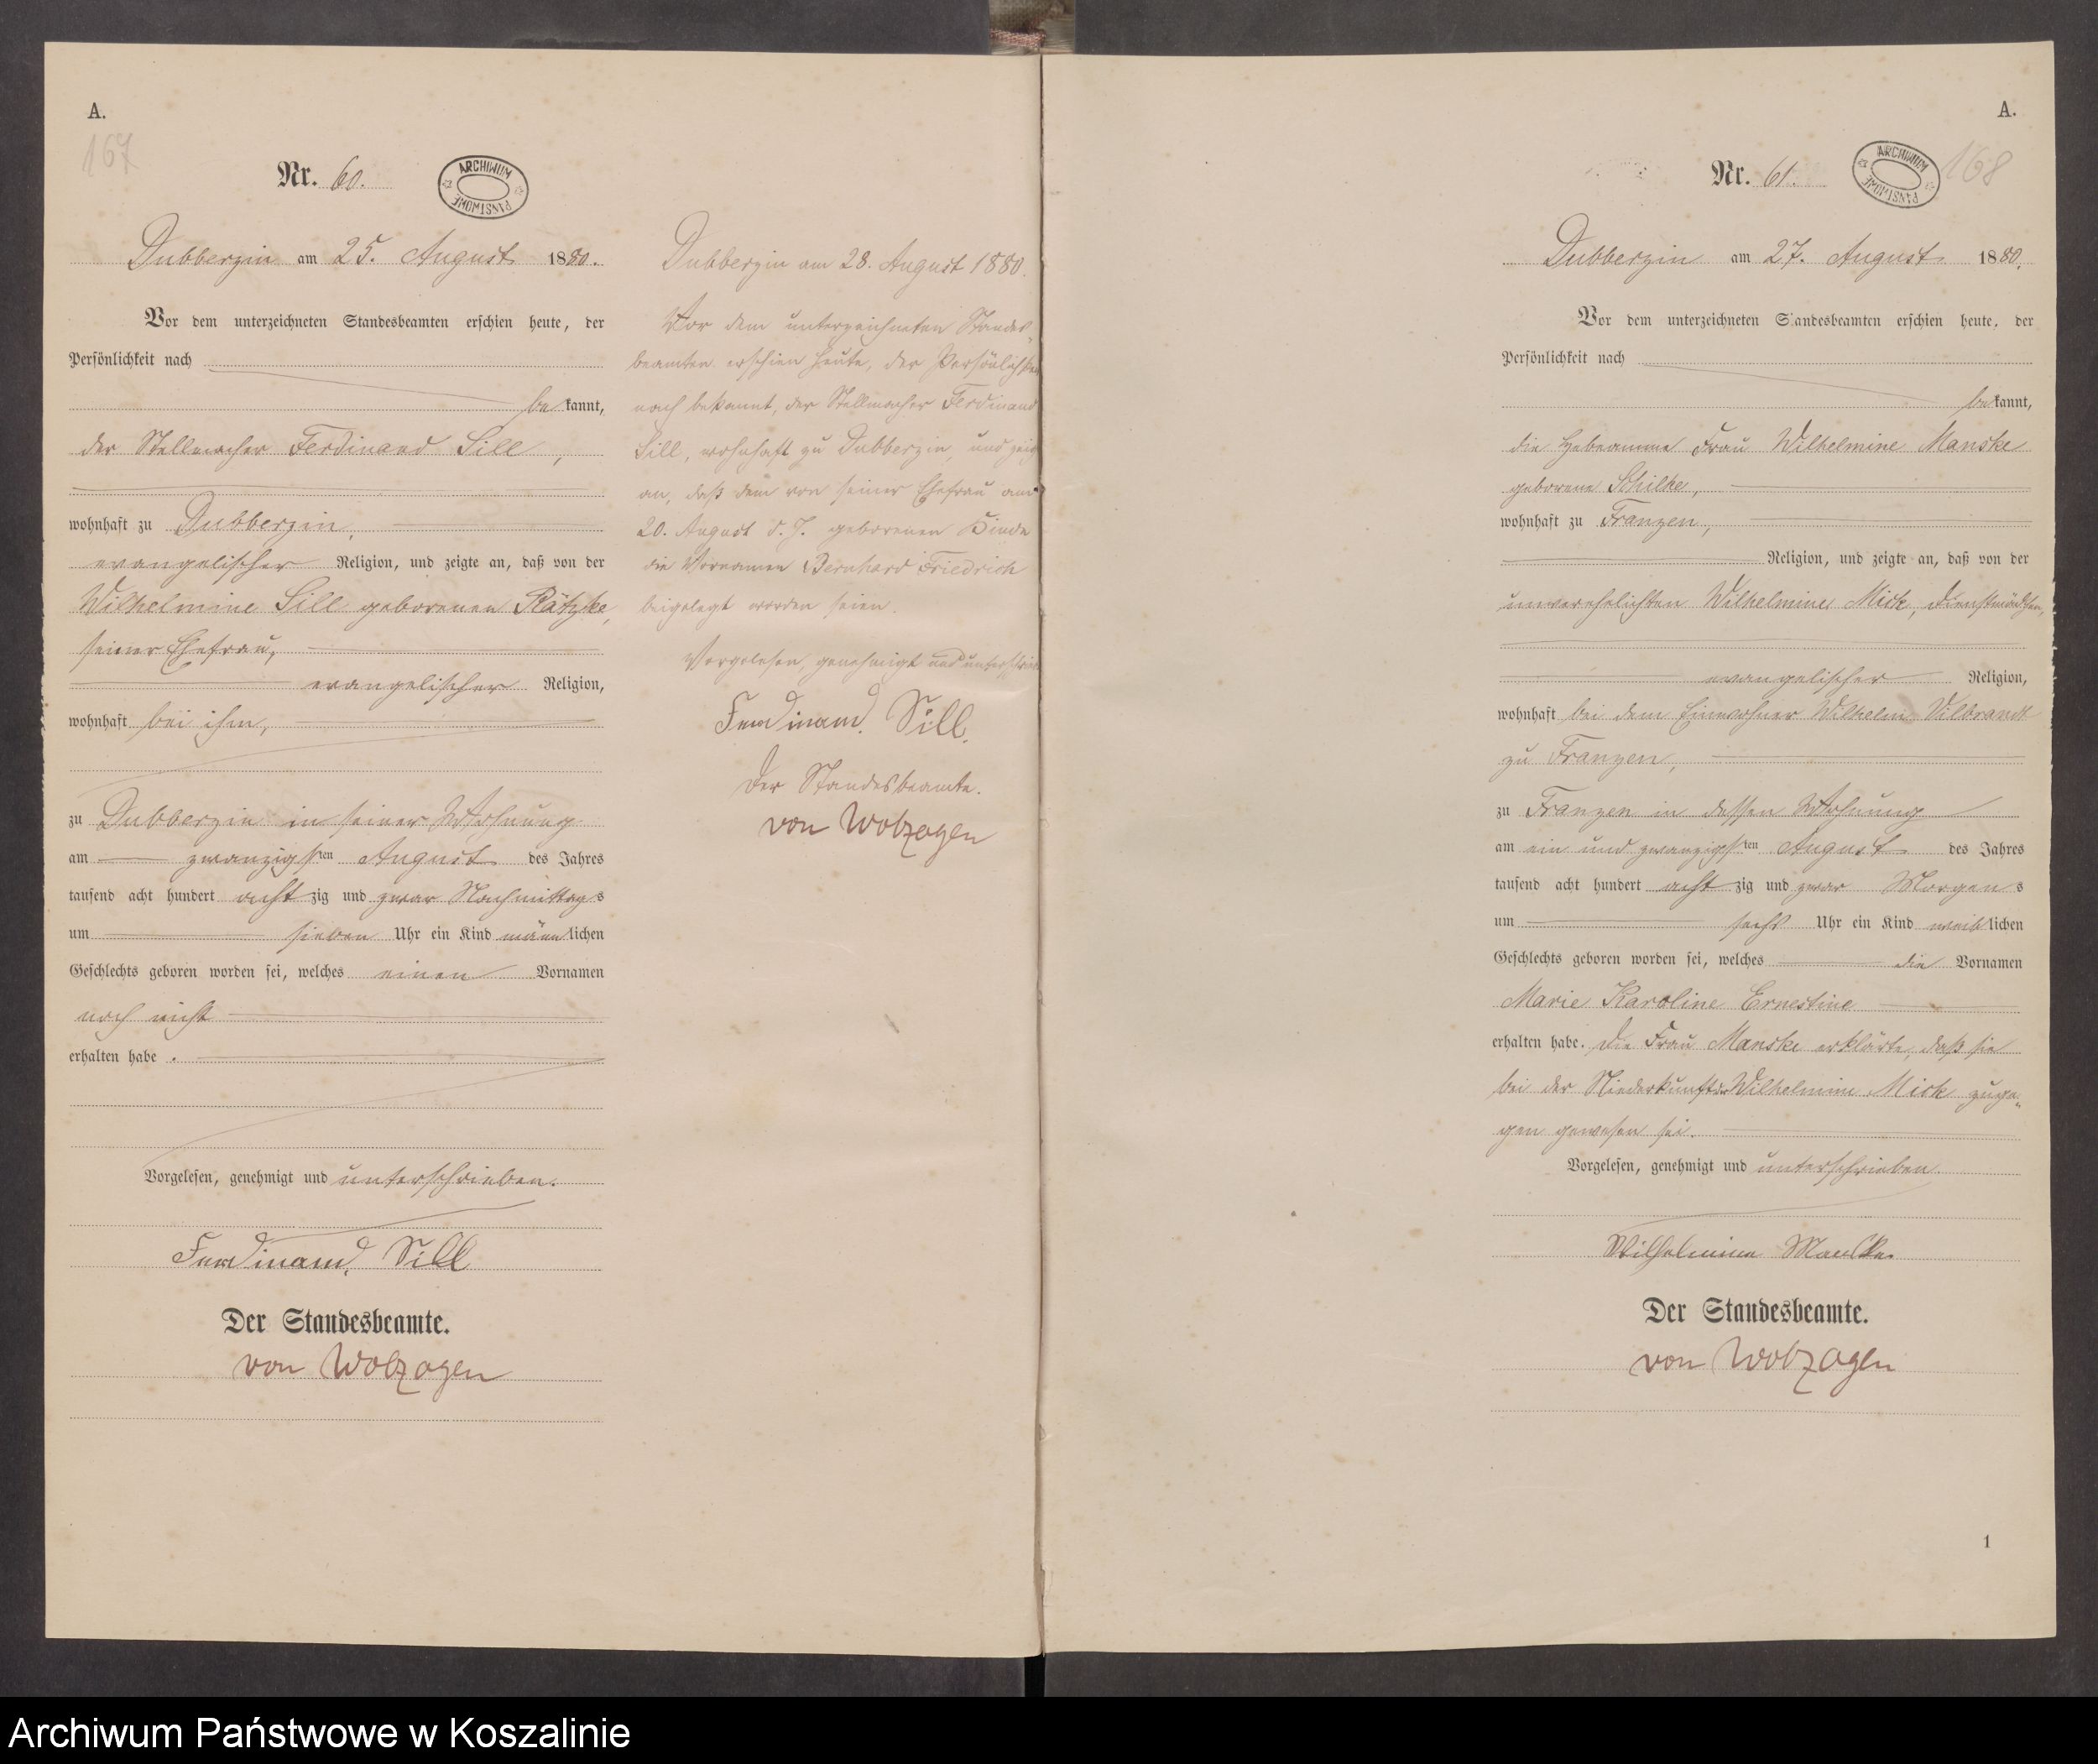 A.
167
Nr. 60.
ARCHIWUM PAŃSTWOWE
Dubberzin am 25. August 1880.
Vor dem unterzeichneten Standesbeamten erschien heute, der
Persönlichkeit nach
bekannt,
der Stellmacher Ferdinand Sill,
wohnhaft zu Dubberzin,
evangelischer Religion, und zeigte an, daß von der
Wilhelmine Sill geborenen Rätzke,
seiner Ehefrau,
evangelischer Religion,
wohnhaft bei ihm,
zu Dubberzin in seiner Wohnung
am zwanzigsten August des Jahres
tausend acht hundert achtzig und zwar Nachmittags
um sieben Uhr ein Kind männlichen
Geschlechts geboren worden sei, welches einen Vornamen
noch nicht
erhalten habe.
Vorgelesen, genehmigt und unterschrieben.
Ferdinand Sill
Der Standesbeamte.
von Wolzogen
Dubberzin am 28. August 1880.
Vor dem unterzeichneten Standes-
beamten erschien heute, der Persönlichkeit
nach bekannt, der Stellmacher Ferdinand
Sill, wohnhaft zu Dubberzin, und zeigt
an, daß dem von seiner Ehefrau am
20. August d. J. geborenen Kinde
die Vornamen Bernhard Friedrich
beigelegt worden seien.
Vorgelesen, genehmigt und unterschrieben
Ferdinand Sill.
Der Standesbeamte.
von Wolzogen
A.
168
Nr. 61.
ARCHIWUM PAŃSTWOWE
Dubberzin am 27. August 1880.
Vor dem unterzeichneten Standesbeamten erschien heute, der
Persönlichkeit nach
bekannt,
die Hebeamme Frau Wilhelmine Manske
geborene Schilke,
wohnhaft zu Franzen,
Religion, und zeigte an, daß von der
unverehelichten Wilhelmine Mick, Dienstmädchen,
evangelischer Religion,
wohnhaft bei dem Einwohner Wilhelm Vilbrandt
zu Franzen,
zu Franzen in dessen Wohnung
am ein und zwanzigsten August des Jahres
tausend acht hundert achtzig und zwar Morgens
um sechs Uhr ein Kind weiblichen
Geschlechts geboren worden sei, welches die Vornamen
Marie Karoline Ernestine
erhalten habe. Die Frau Manske erklärte, daß sie
bei der Niederkunft der Wilhelmine Mick zuge-
gen gewesen sei.
Vorgelesen, genehmigt und unterschrieben.
Wilhelmine Manske
Der Standesbeamte.
von Wolzogen
1
Archiwum Państwowe w Koszalinie